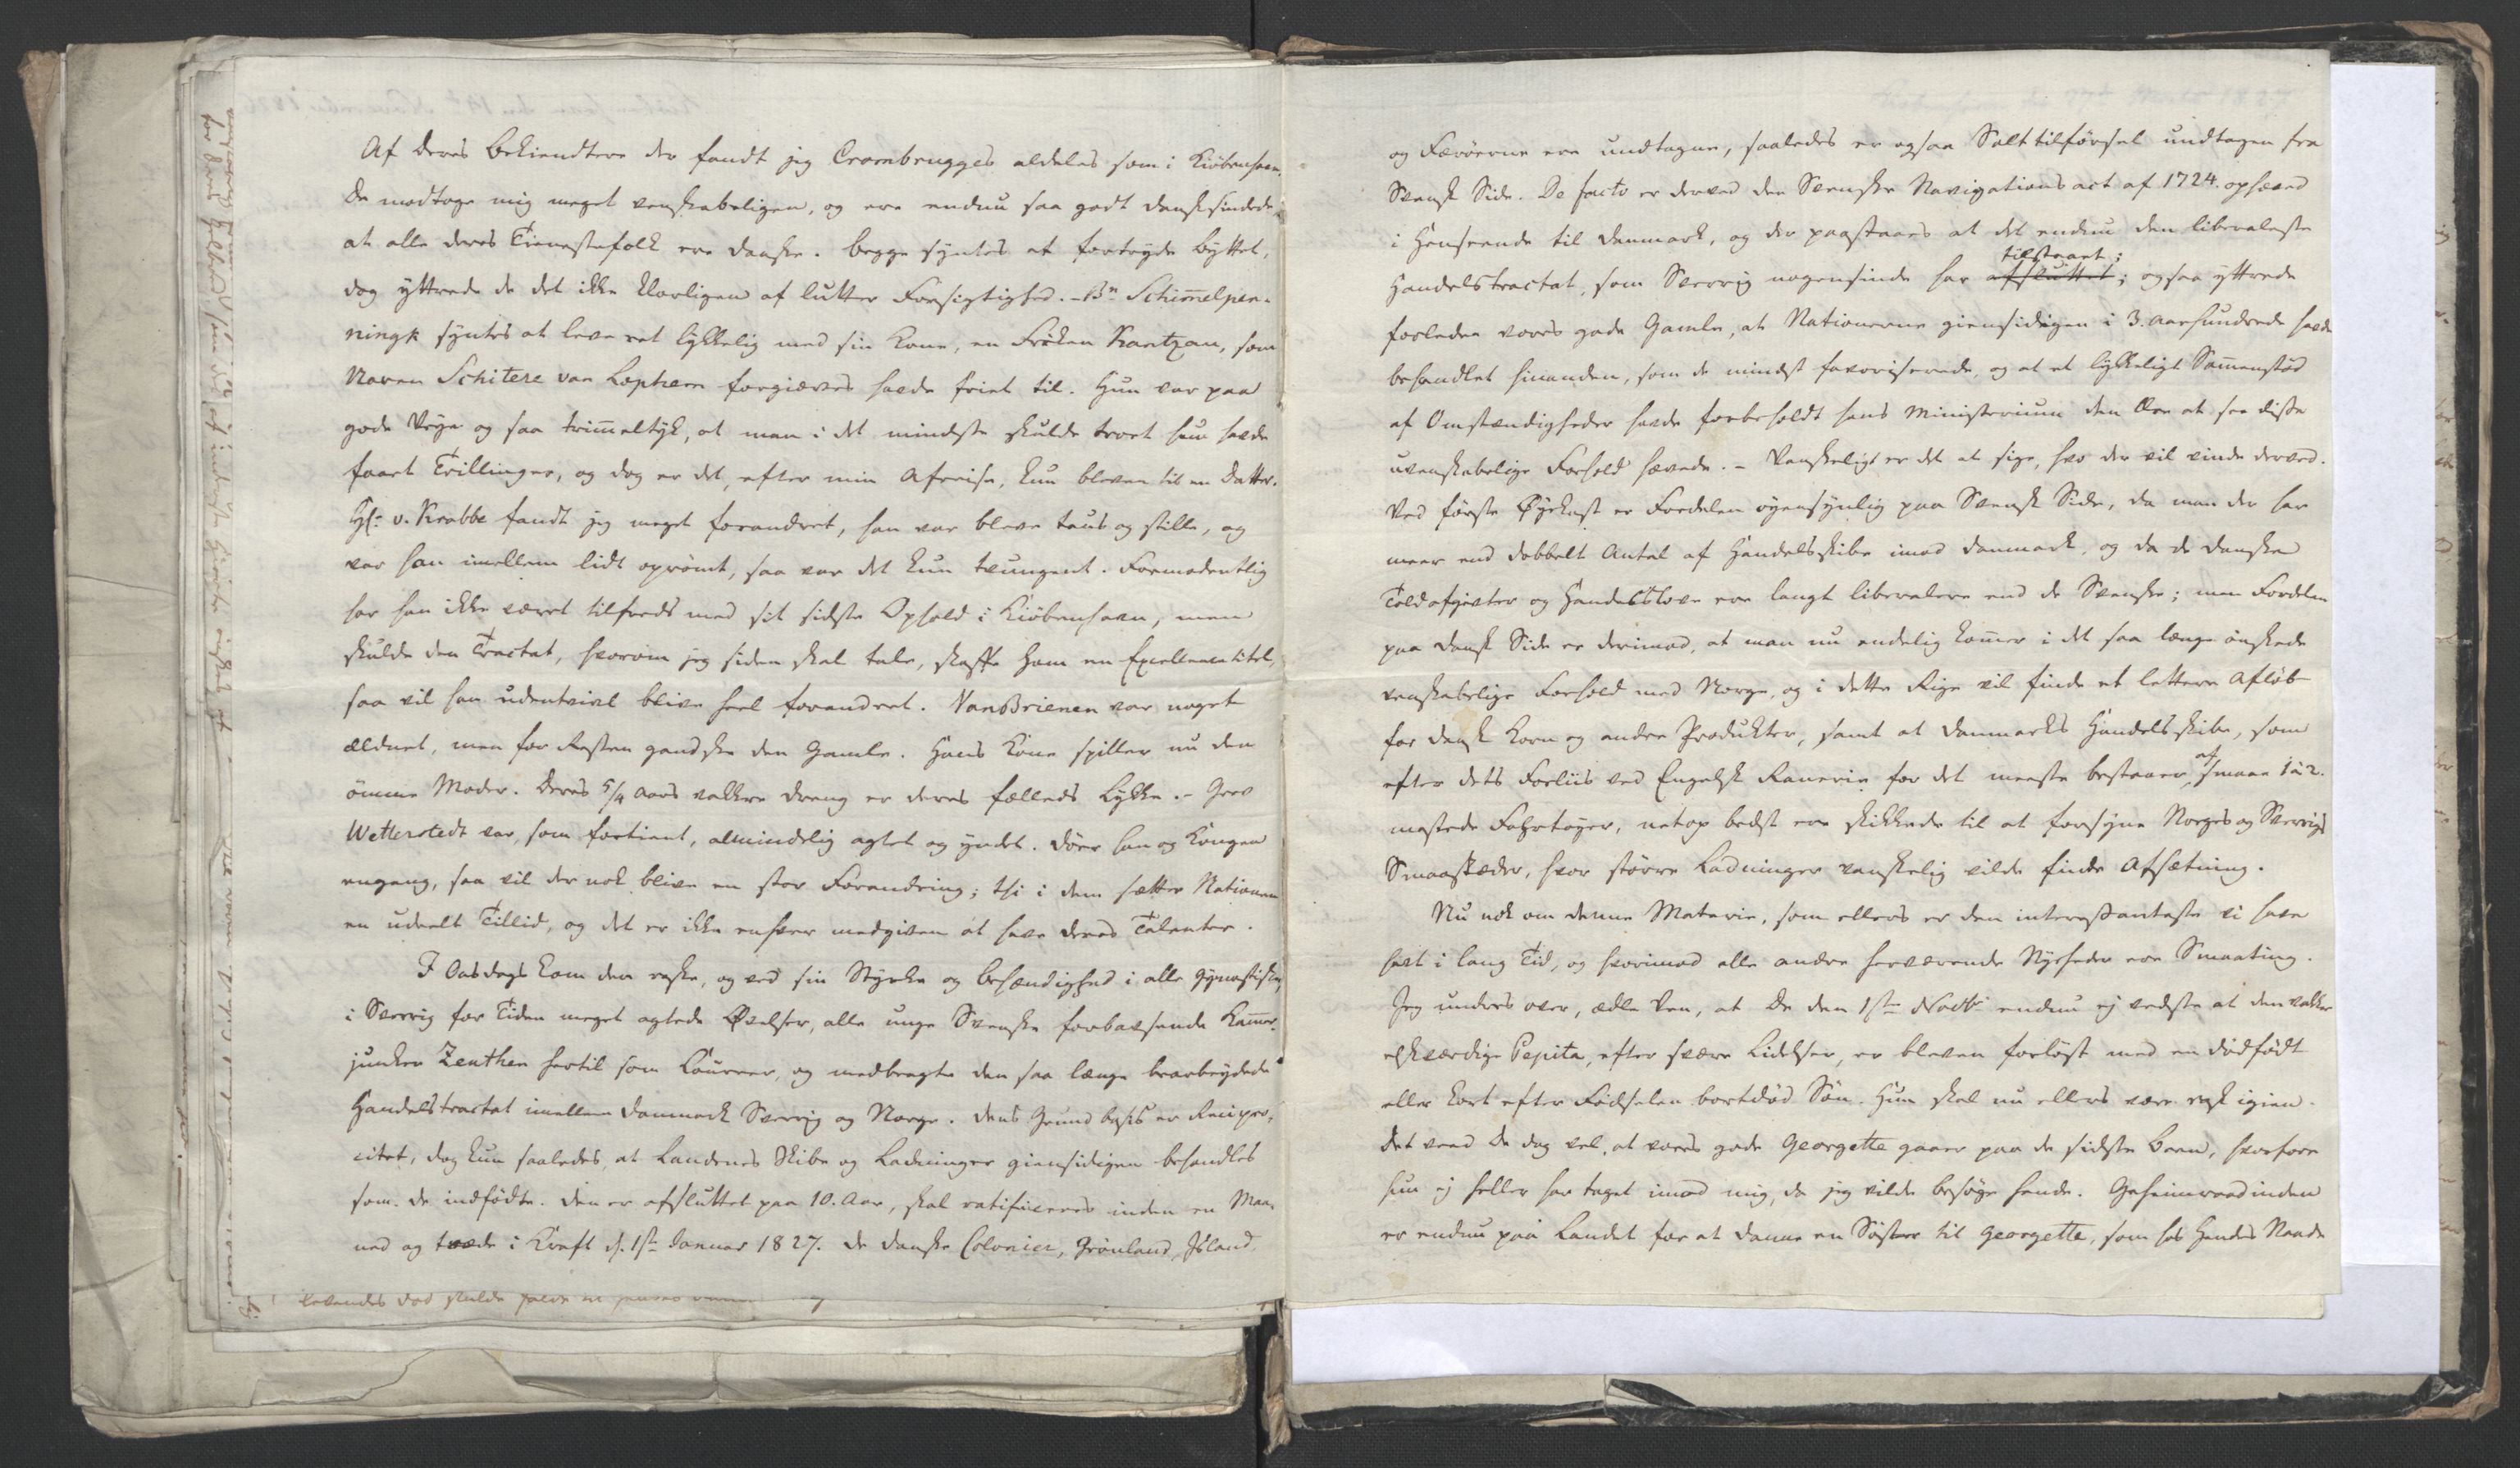 Af Deres Bekiendtere der fandt jeg Crombrugges aldeles som i Kiöbenhavn.
De modtoge mig meget venskabeligen, og ere endnu saa godt dansksindede
at alle deres Tienestefolk ere danske. Begge syntes at fortryde Byttet,
dog yttrede de det ikke klarligen af lutter Forsigtighed. - Bn Schimmelpen-
ningk syntes at leve ret lykkelig med sin Kone, en Fröken Rantzau, som
Naren Schitere van Lophem forgiæves havde friet til. Hun var paa
gode Veye og saa trimmeltyk, at man i det mindste skulde troet hun havde
faaet Trillinger, og dog er det, efter min Afreise, kun bleven til en Datter.
Hr. v. Krabbe fandt jeg meget forandret, han var bleven taus og stille, og
var han imellem lidt oprömt, saa var det kun tvungent. Formodentlig
har han ikke været tilfreds med sit sidste Ophold i Kiöbenhavn, men
skulde den Tractat, hvorom jeg siden skal tale, skaffe ham en Excellencetitel,
saa vil han udentvivl blive heel forandret. Van Brienen var noget
ældnet, men for Resten gandske den Gamle. Hans Kone spiller nu den
ömme Moder. Deres 5/4 Aars vakkre Dreng er deres fælleds Lykke. - Grev
Wetterstedt var, som fortient, almindelig agtet og yndet. Döer han og Kongen
engang, saa vil der nok blive en stor Forandring; thi i dem sætter Nationen
en udeelt Tillid, og det er ikke enhver medgivet at have deres Talenter.
I Onsdags kom den raske, og ved sin Styrke og Behændighed i alle gymnastiske,
i Sverrig for Tiden meget agtede Øvelser, alle unge Svenske forbausende Kammer-
junker Zeuthen hertil som Courrer, og medbragte den saa længe bearbeydede
Handelstractat imellem Danmark Sverrig og Norge. Dens Grund basis er Recipro-
citet, dog kun saaledes, at Landenes Skibe og Ladninger giensidigen behandles
som de indfödte. Den er afsluttet paa 10. Aar, skal ratificeres inden en Maa-
ned og træde i Kraft d. 1ste Januar 1827. De danske Colonier, Grönland, Island,
og Færöerne ere undtagne, saaledes er ogsaa Salttilförsel undtagen fra
Svensk Side. De facto er derved den Svenske Navigationsact af 1724. ophæved
i Henseende til Danmark, og der paastaaes at det endnu den liberaleste
tilstaaet;
Handelstractat, som Sverrig nogensinde har afsluttet; ogsaa yttrede
forleden vores gode Gamle, at Nationerne giensidigen i 3. Aarhundrede havde
behandlet hinanden, som de mindst favoriserede, og at et lykkeligt Sammenstöd
af Omstændigheder havde forbeholdt hans Ministerium den Ære at see disse
uvenskabelige Forhold hævede. - Vanskeligt er det at sige, hvo der vil vinde derved.
Ved förste Øyekast er Fordelen öyensynlig paa Svensk Side, da man der har
meer end dobbelt Antal af Handelsskibe imod Danmark, og da de danske
Toldafgivter og Handelslove ere langt liberalere end de Svenske; men Fordelen
paa dansk Side er derimod, at man nu endelig kommer i det saa længe önskede
venskabelige Forhold med Norge, og i dette Rige vil finde et lettere Aflöb
for dansk Korn og andre Produkter, samt at Danmarks Handelsskibe, som
efter dets Forliis ved Engelsk Raneri for det meeste bestaaer af smaae 1 à 2.
mastede Fahrtöyer, netop bedst ere skikkede til at forsyne Norges og Sverrigs
Smaastæder, hvor större Ladninger vanskelig vilde finde Afsætning.
Nu nok om denne Materie, som ellers er den interessanteste vi have
havt i lang Tid, og hvorimod alle andre herværende Nyheder ere Smaating.
Jeg undres over, ædle Ven, at De den 1ste Novbr endnu ej vedste at den vakkre
elskværdige Pepita, efter svære Lidelser, er bleven forlöst med en dödfödt
eller kort efter Födselen bortdöd Sön. Hun skal nu ellers være rask igien.
Det veed De dog vel, at vores gode Georgette gaaer paa de sidste Been, hvorfore
hun ej heller har taget imod mig, da jeg vilde besöge hende. Geheimeraadinden
er endnu paa Landet for at danne en Söster til Georgette, som hos Hendes Naade